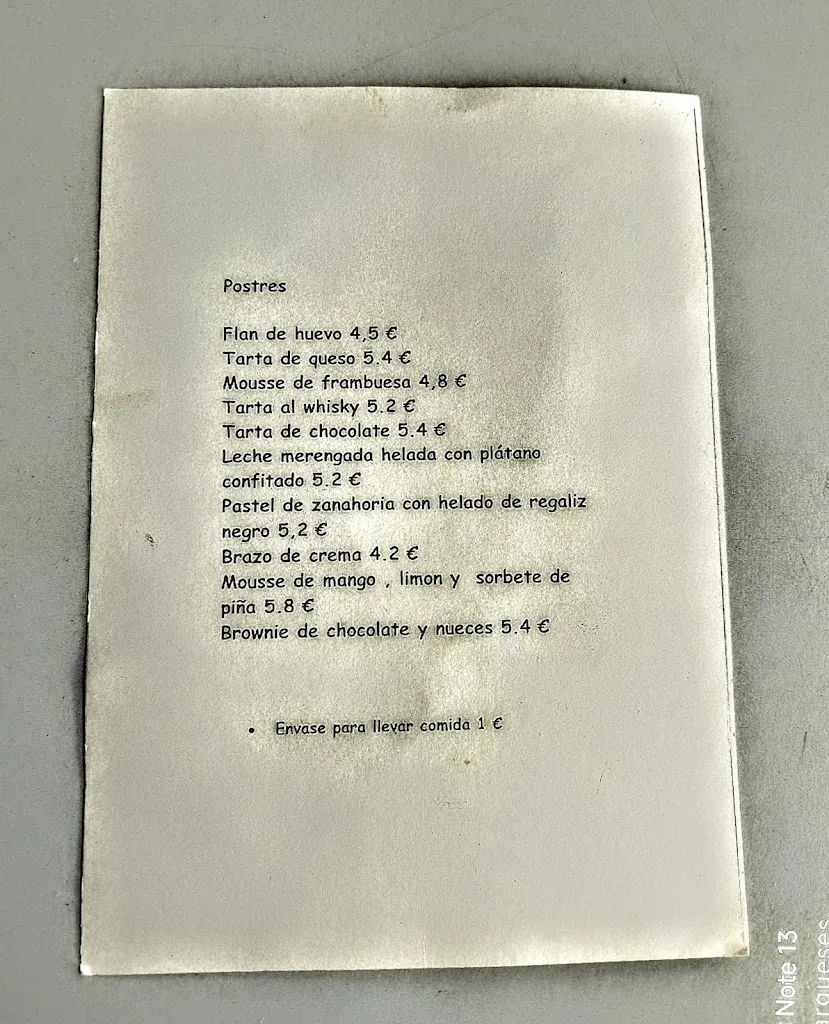 Postres
Flan de huevo 4,5 €
Tarta de queso 5.4 €
Mousse de frambuesa 4,8 €
Tarta al whisky 5.2 €
Tarta de chocolate 5.4 €
Leche merengada helada con plátano
confitado 5.2 €
Pastel de zanahoria con helado de regaliz
negro 5,2 €
Brazo de crema 4.2 €
Mousse de mango , limon y sorbete de
piña 5.8 €
Brownie de chocolate y nueces 5.4 €
• Envase para llevar comida 1 €
Note 13